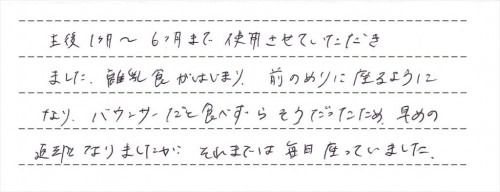 生後1ヶ月〜6ヶ月まで使用させていただき
ました。離乳食がはじまり、前のめりに座るように
なり、バウンサーだと食べずらそうだったため、早めの
返却となりましたが、それまでは毎日座っていました。